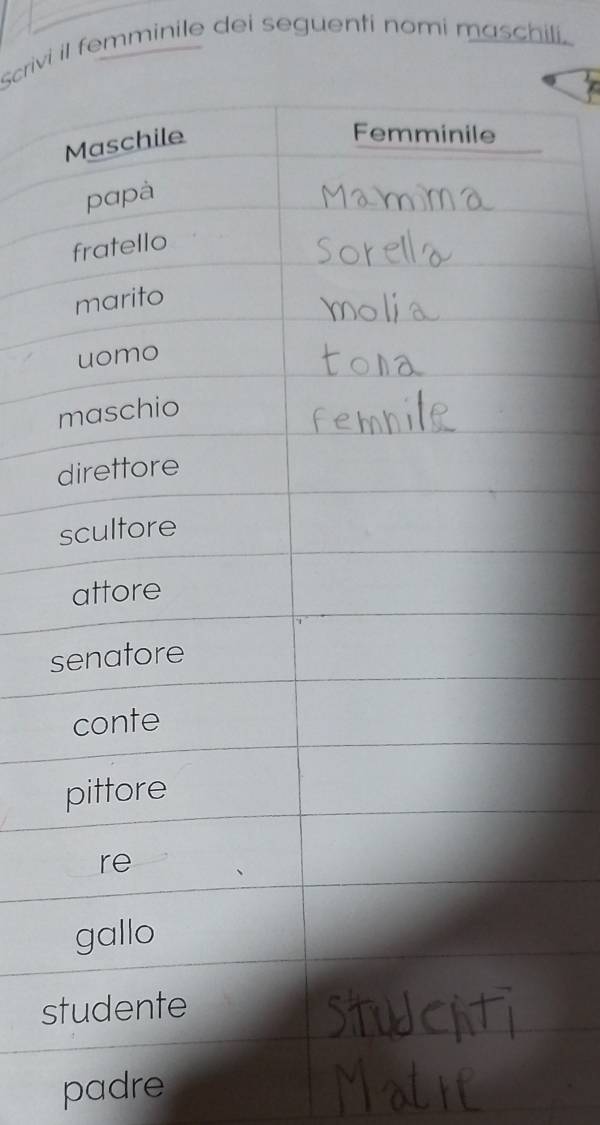 scrivi il femminile dei seguenti nomi maschili.
Maschile Femminile
papà Mamma
fratello sorella
marito molia
uomo tona
maschio femnile
direttore
scultore
attore
senatore
conte
pittore
re
gallo
studente studenti
padre Matre